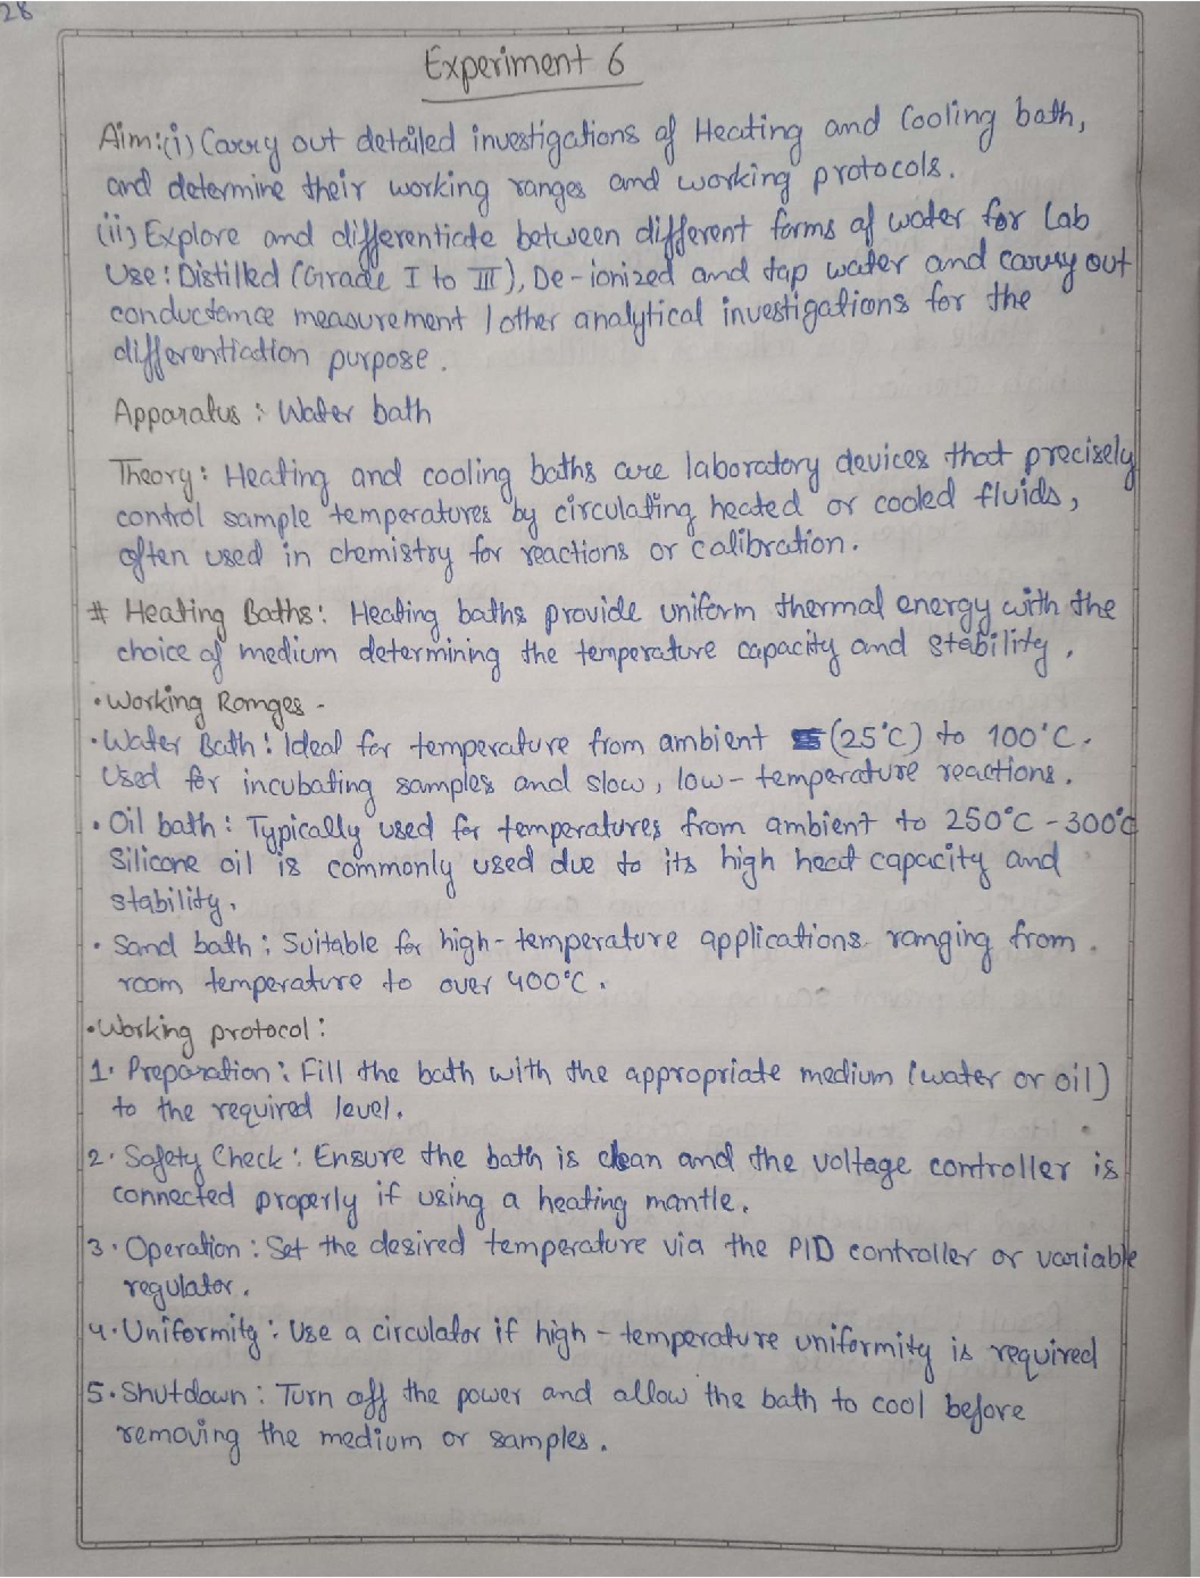 28
Experiment 6
Aim:(i) Carry out detailed investigations of Heating and Cooling bath,
and determine their working ranges and working protocols.
(ii) Explore and differentiate between different forms of water for Lab
Use: Distilled (Grade I to III), De-ionized and tap water and carry out
conductance measurement / other analytical investigations for the
differentiation purpose.
Apparatus: Water bath
Theory: Heating and cooling baths are laboratory devices that precisely
control sample temperatures by circulating heated or cooled fluids,
often used in chemistry for reactions or calibration.
# Heating Baths: Heating baths provide uniform thermal energy with the
choice of medium determining the temperature capacity and stability.
• Working Ranges -
• Water Bath: Ideal for temperature from ambient (25°C) to 100°C.
Used for incubating samples and slow, low-temperature reactions.
• Oil bath: Typically used for temperatures from ambient to 250°C - 300°C
Silicone oil is commonly used due to its high heat capacity and
stability.
• Sand bath: Suitable for high-temperature applications ranging from
room temperature to over 400°C.
• Working protocol:
1. Preparation: Fill the bath with the appropriate medium (water or oil)
to the required level.
2. Safety Check: Ensure the bath is clean and the voltage controller is
connected properly if using a heating mantle.
3. Operation: Set the desired temperature via the PID controller or variable
regulator.
4. Uniformity: Use a circulator if high-temperature uniformity is required
5. Shutdown: Turn off the power and allow the bath to cool before
removing the medium or samples.